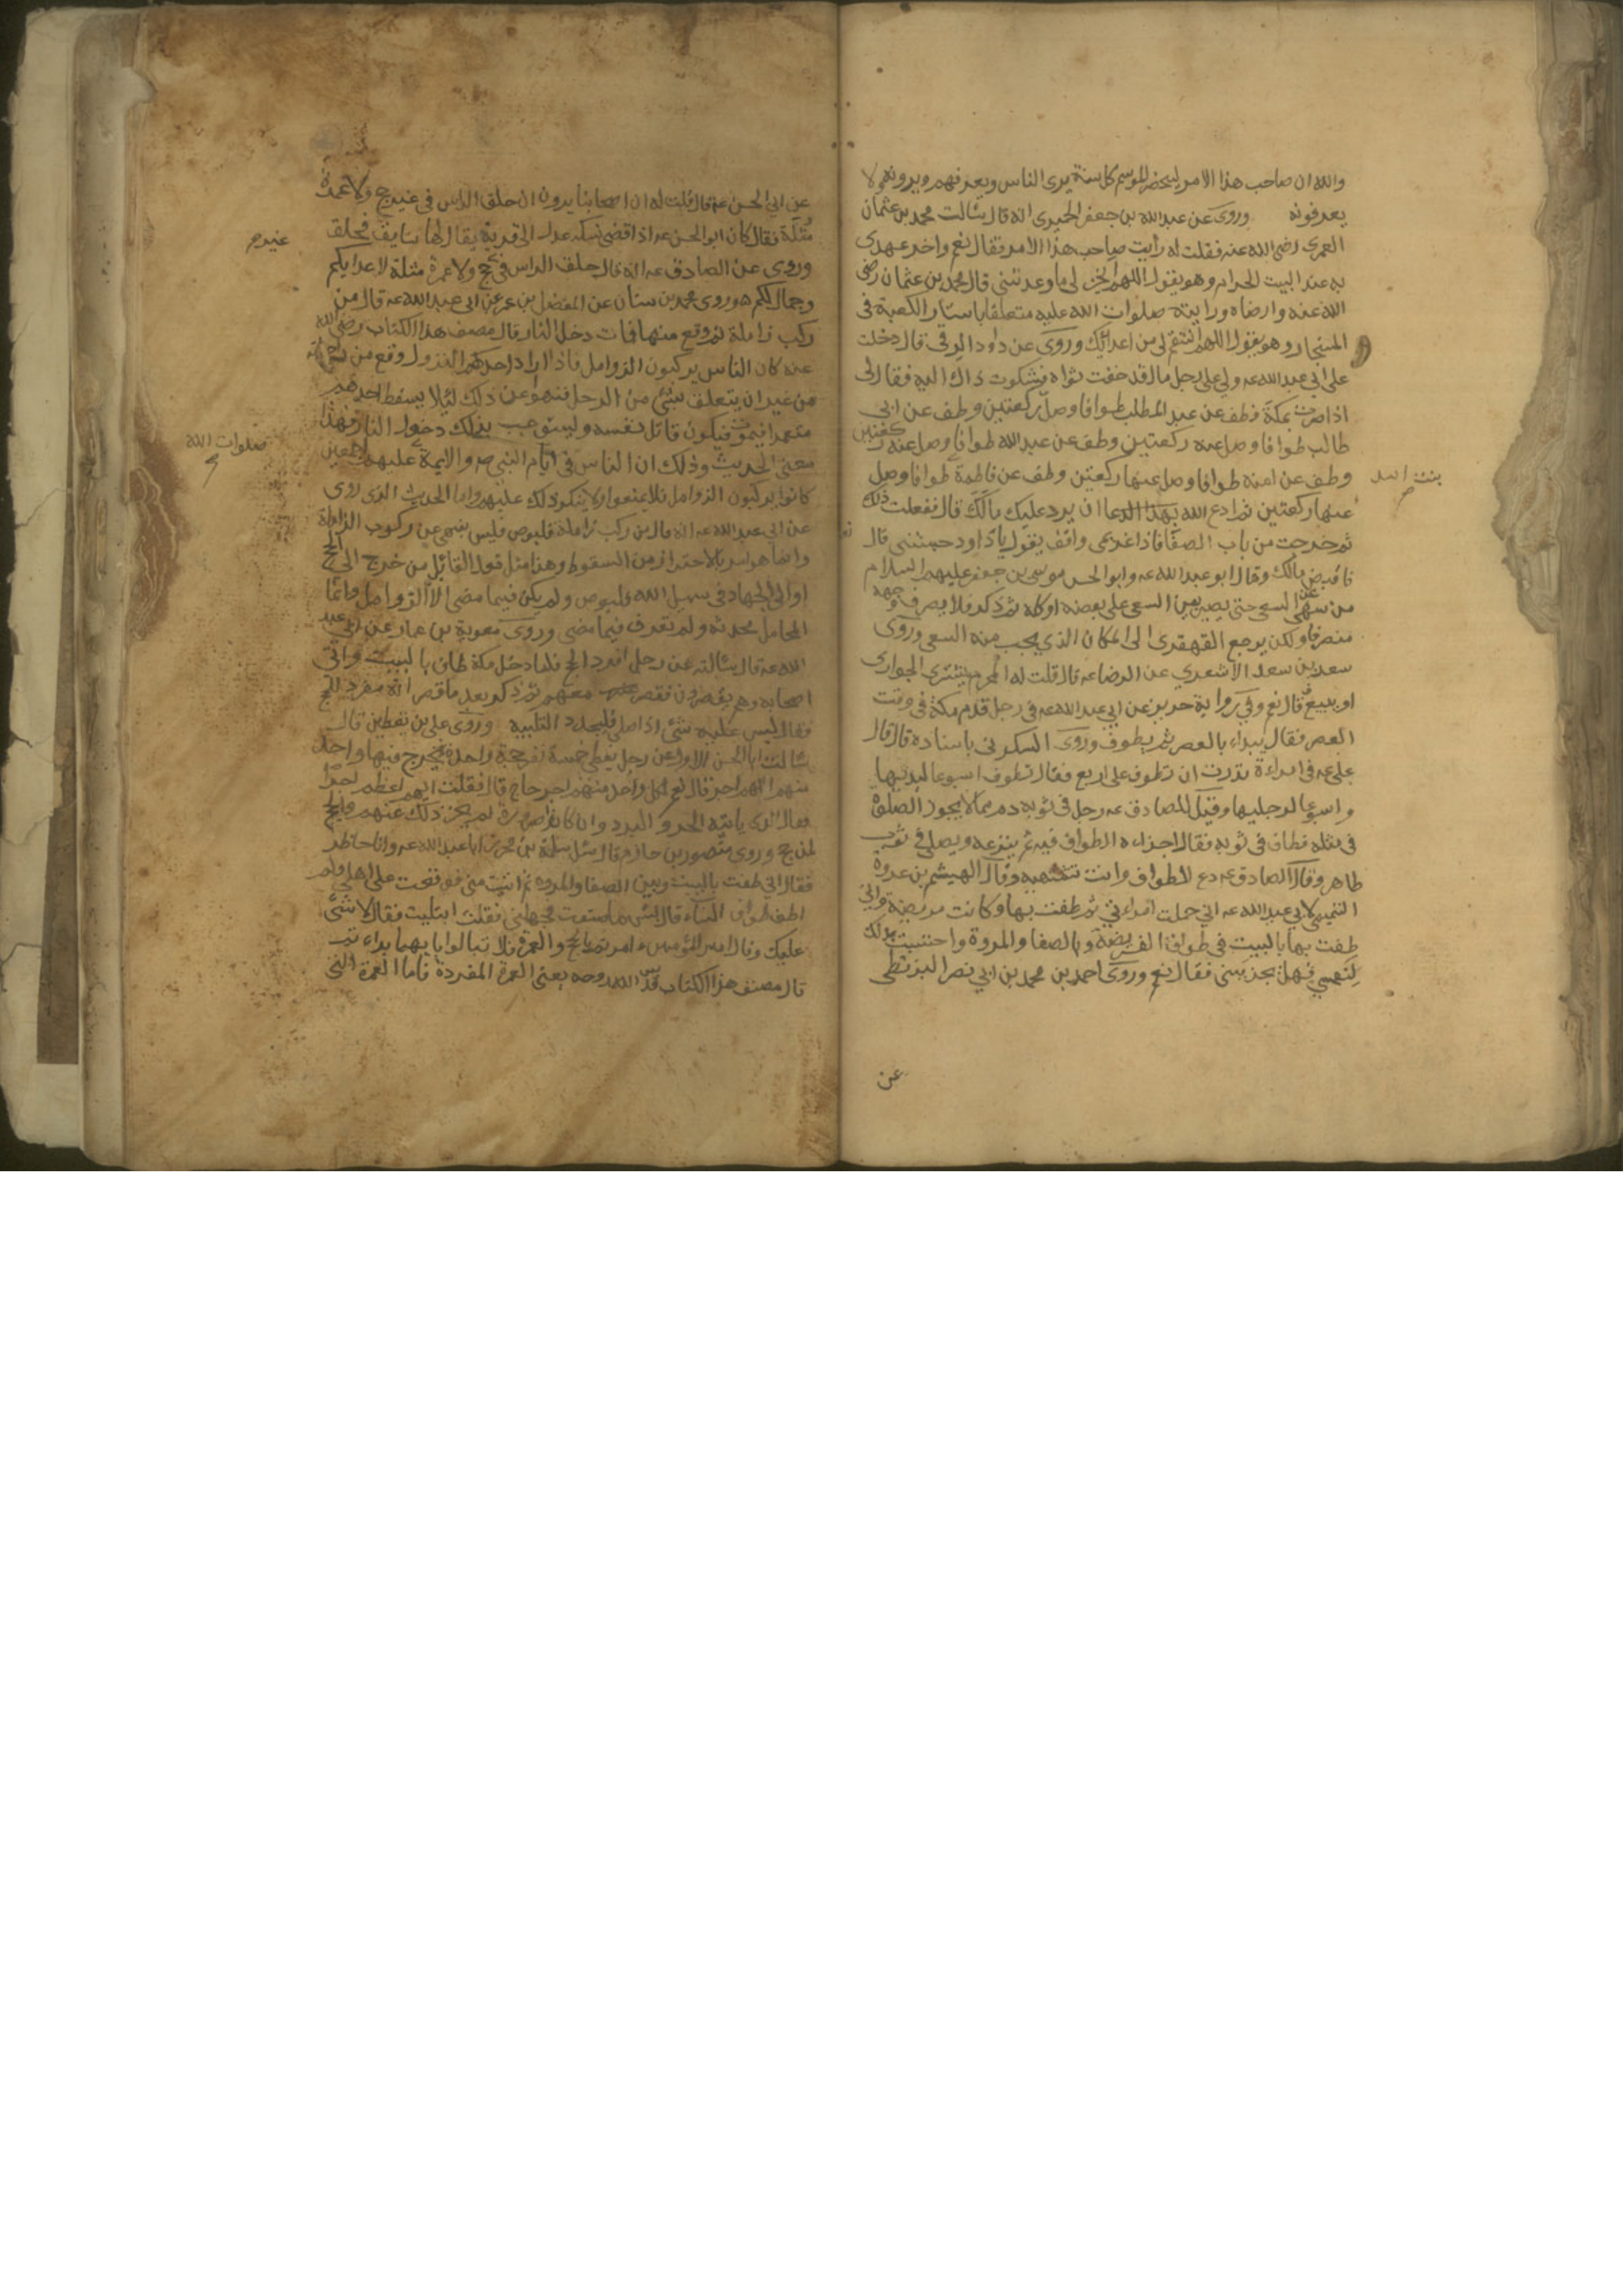 والله ان صاحب هذا الامر ليحضر الموسم كل سنة يرى الناس ويعرفهم ويرونه ولا
يعرفونه وروى عن عبد الله بن جعفر الحميرى انه قال سالت محمد بن عثمان
العمرى رضى الله عنه فقلت له رأيت صاحب هذا الامر فقال نعم واخر عهدى
به عند البيت الحرام وهو يقول اللهم انجز لى ما وعدتنى قال محمد بن عثمان رضى
الله عنه وارضاه ورايته صلوات الله عليه متعلقا باستار الكعبة فى
المستجار وهو يقول اللهم انتقم لى من اعدائك وروى عن داود الرقى قال دخلت
على ابى عبد الله عه ولى على رجل مال قد خفت تواه فشكوت ذاك اليه فقال لى
اذا صرت بمكة فطف عن عبد المطلب طوافا وصل ركعتين وطف عن ابى
طالب طوافا وصل عنه ركعتين وطف عن عبد الله طوافا وصل عنه ركعتين
وطف عن امنة طوافا وصل عنها ركعتين وطف عن فاطمة طوافا وصل
بنت اسد
عنها ركعتين ثم ادع الله بهذا الدعا ان يرد عليك مالك قال ففعلت ذلك
ثم خرجت من باب الصفا فاذا غريمى واقف يقول يا داود حبستنى قال
فاقبض مالك وقال ابو عبد الله عه وابو الحسن موسى بن جعفر عليهم السلام
من سهى عن السعى حتى يصير من السعى على بعضه او كله ثم ذكر فلا يصرف وجهه
منصرفا ولكن يرجع القهقرى الى المكان الذي يجب منه السعى وروى
سعد بن سعد الاشعري عن الرضا عه قال قلت له المحرم يشترى الجوارى
او يبيع قال نعم وفي رواية حريز عن ابي عبد الله عه فى رجل قدم مكة فى وقت
العصر فقال يبداء بالعصر ثم يطوف وروى السكونى باسناده قال قال
على عه فى امراءة نذرت ان تطوف على اربع فقال تطوف اسبوعا ليديها
واسبوعا لرجليها وقيل للصادق عه رجل فى ثوبه دم مما لا يجوز الصلوة
فى مثله فطاف فى ثوبه فقال اجزاءه الطواف فيه ثم ينزعه ويصلي فى ثوب
طاهر وقال الصادق عه دع الطواف وانت تشتهيه وقال الهيثم بن عروة
التميمى لابي عبد الله عه اني حملت امراءتي ثم طفت بها وكانت مريضة واني
طفت بها بالبيت فى طواف الفريضة وبالصفا والمروة واحتسبت بذلك
لنفسي فهل يجزيني فقال نعم وروى احمد بن محمد بن ابي نصر البزنطى
عن
عن ابي الحسن عه قال قلت له ان اصحابنا يروون ان حلق الراس فى غير حج ولا عمرة
مثلة فقال كان ابو الحسن عه اذا قضى نسكه عدل الى قرية يقال لها سايق فحلق
وروى عن الصادق عه انه قال حلق الراس فى حج ولا عمرة مثلة لاعدايكم
غير
وجمال لكم وروى محمد بن سنان عن المفضل بن عمر عن ابى عبد الله عه قال من
ركب زاملة ثم وقع منها فمات دخل النار قال مصنف هذا الكتاب رضى الله
عنه كان الناس يركبون الزوامل فاذا اراد احدهم النزول وقع من
من غير ان يتعلق بشئ من الرحل فنهوا عن ذلك لئلا يسقط احدهم
متعمدا فيموت فيكون قاتل نفسه ويستوجب بذلك دخول النار فهذا
معنى الحديث وذلك ان الناس فى ايام النبى صه والايمة عليهم
صلوات الله
كانوا يركبون الزوامل فلا يمنعوا ولا ينكر ذلك عليهم واما الحديث الذى روى
عن ابى عبد الله عه انه قال من ركب زاملة فليوص فليس بنهى عن ركوب الزاملة
وانما هو امر بالاحتراز من السقوط وهذا مثل قول القائل من خرج الى الحج
او الى الجهاد فى سبيل الله فليوص ولم يكن فيما مضى الا الزوامل وانما
المحامل محدثه ولم تعرف فيما مضى وروى معوية بن عمار عن ابى عبد
الله عه قال سالته عن رجل افرد الحج فلما دخل مكة طاف بالبيت واتى
اصحابه وهم يقصرون فقصر معهم ثم ذكر بعد ما قصر انه مفرد للحج
فقال ليس عليه شئ اذا صلى فليجدد التلبية وروى على بن يقطين قال
سالت ابا الحسن الاول عن رجل يعطى خمسة نفر حجة واحدة يخرج فيها واحد
منهم الهم اجر قال نعم لكل واحد منهم اجر حاج قال فقلت ايهم اعظم اجرا
فقال الذى يابته الحر والبرد وان كانوا صرورة لم يجز ذلك عنهم والحج
لمن حج وروى منصور بن حازم قال سئل سلمة بن محرز ابا عبد الله عه وانا حاضر
فقال اني طفت بالبيت وبين الصفا والمروه ثم اتيت منى فوقعت على اهلى ولم
اطف طواف النساء قال بئس ما صنعت فجهلنى فقلت ابتليت فقال لا شئ
عليك وقال امير المؤمنين ء امرتم بالحج والعمرة فلا تبالوا بايهما بداءتم
قال مصنف هذا الكتاب قدس الله روحه يعنى العمرة المفردة فاما العمرة التى